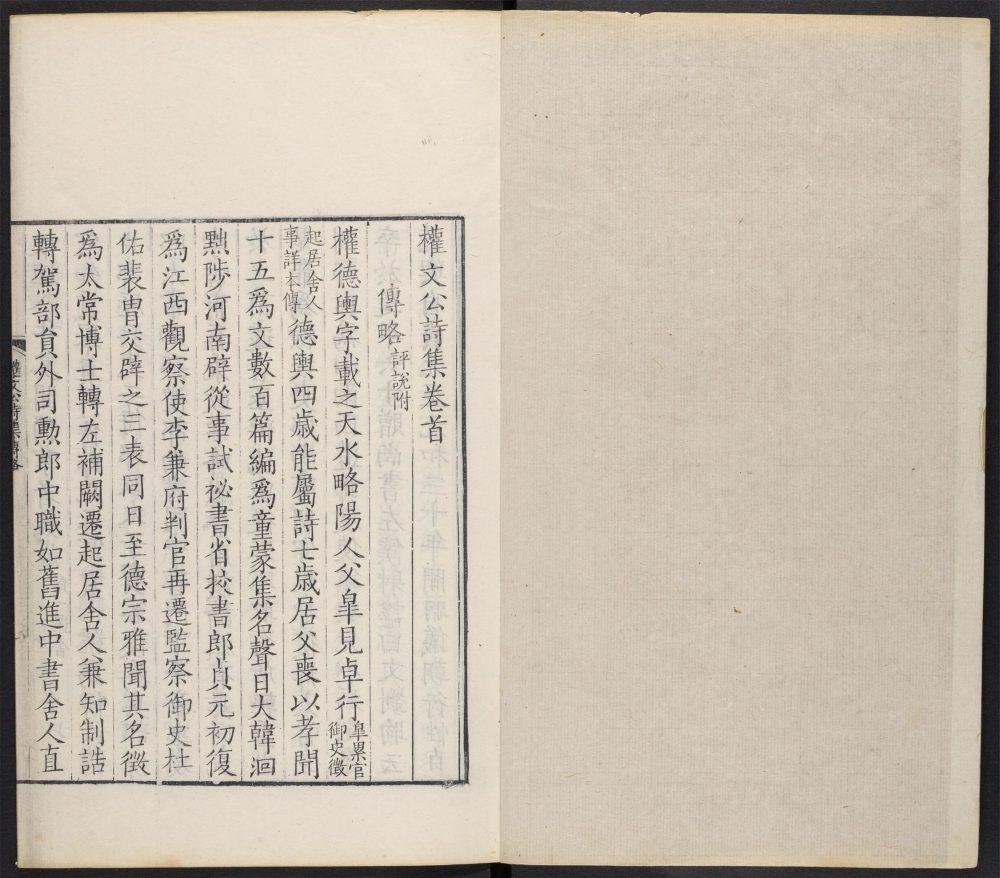 權文公詩集卷首
傳略評說附
權德輿字載之天水略陽人父臯見卓行臯累官御史徵
起居舍人事詳本傳德輿四歲能屬詩七歲居父喪以孝聞
十五爲文數百篇編爲童蒙集名聲日大韓洄
黜陟河南辟從事試祕書省挍書郎貞元初復
爲江西觀察使李兼府判官再遷監察御史杜
佑裴胄交辟之三表同日至德宗雅聞其名徵
爲太常博士轉左補闕遷起居舍人兼知制誥
轉駕部員外司勲郎中職如舊進中書舍人直